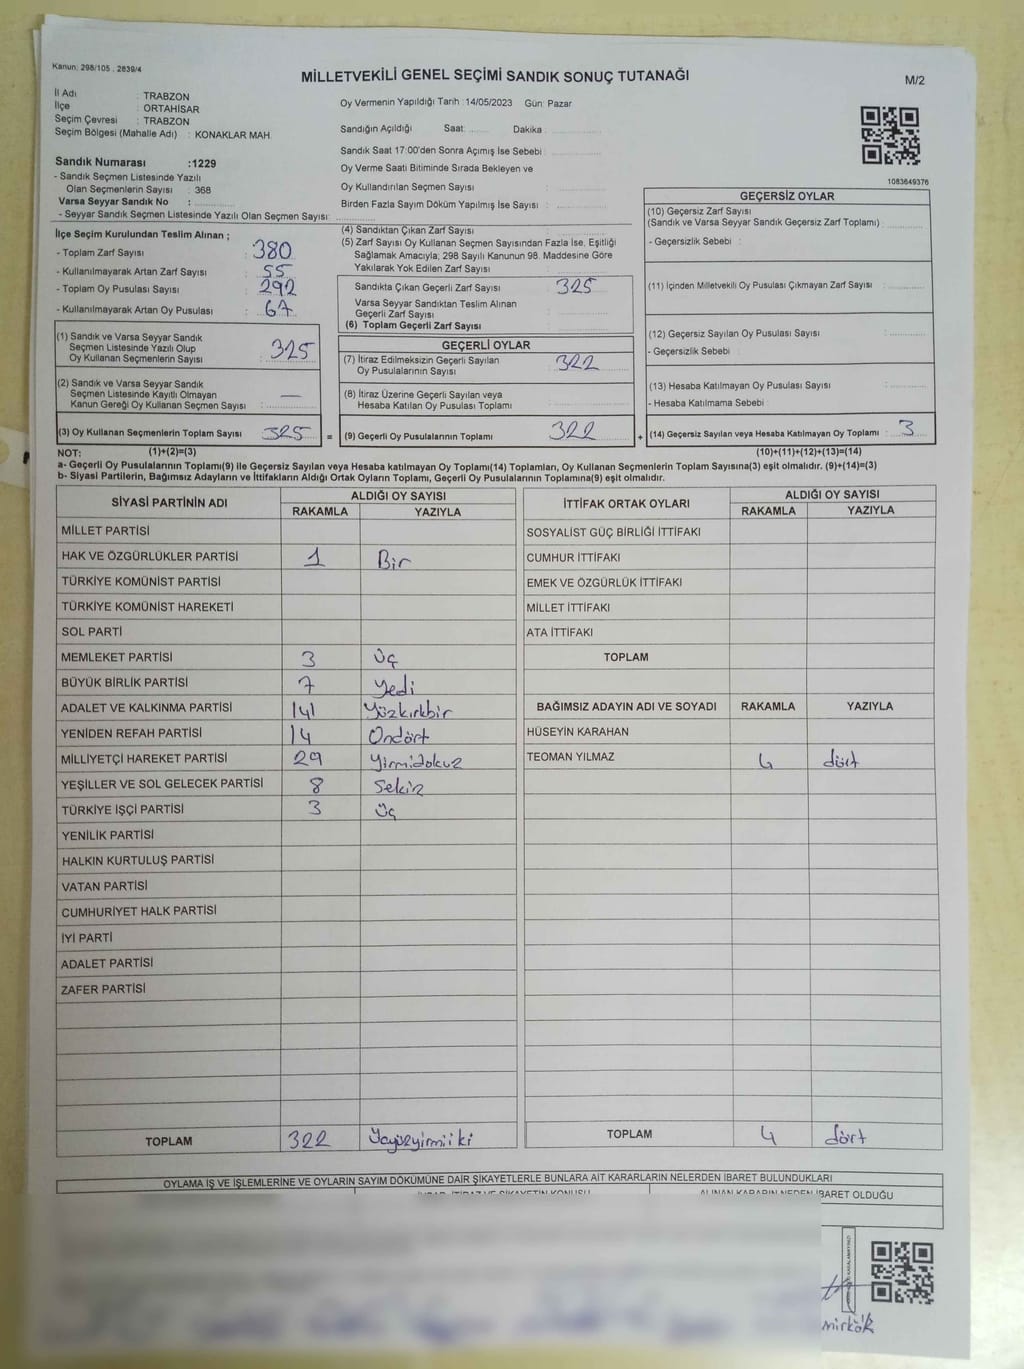 Kanun: 298/105 , 2839/4
MİLLETVEKİLİ GENEL SEÇİMİ SANDIK SONUÇ TUTANAĞI
M/2
İl Adı : TRABZON
İlçe : ORTAHİSAR
Seçim Çevresi : TRABZON
Seçim Bölgesi (Mahalle Adı) : KONAKLAR MAH.
Oy Vermenin Yapıldığı Tarih :14/05/2023 Gün: Pazar
Sandığın Açıldığı Saat: Dakika :
Sandık Saat 17:00'den Sonra Açımış İse Sebebi :
Oy Verme Saati Bitiminde Sırada Bekleyen ve
Oy Kullandırılan Seçmen Sayısı :
Birden Fazla Sayım Döküm Yapılmış İse Sayısı :
1083649376
Sandık Numarası :1229
- Sandık Seçmen Listesinde Yazılı
Olan Seçmenlerin Sayısı : 368
Varsa Seyyar Sandık No :
- Seyyar Sandık Seçmen Listesinde Yazılı Olan Seçmen Sayısı:
İlçe Seçim Kurulundan Teslim Alınan ;
- Toplam Zarf Sayısı : 380
- Kullanılmayarak Artan Zarf Sayısı : 55
- Toplam Oy Pusulası Sayısı : 292
- Kullanılmayarak Artan Oy Pusulası : 67
(1) Sandık ve Varsa Seyyar Sandık
Seçmen Listesinde Yazılı Olup
Oy Kullanan Seçmenlerin Sayısı : 325
(2) Sandık ve Varsa Seyyar Sandık
Seçmen Listesinde Kayıtlı Olmayan
Kanun Gereği Oy Kullanan Seçmen Sayısı : —
(3) Oy Kullanan Seçmenlerin Toplam Sayısı : 325 =
(4) Sandıktan Çıkan Zarf Sayısı :
(5) Zarf Sayısı Oy Kullanan Seçmen Sayısından Fazla İse, Eşitliği
Sağlamak Amacıyla; 298 Sayılı Kanunun 98. Maddesine Göre
Yakılarak Yok Edilen Zarf Sayısı :
Sandıkta Çıkan Geçerli Zarf Sayısı : 325
Varsa Seyyar Sandıktan Teslim Alınan
Geçerli Zarf Sayısı :
(6) Toplam Geçerli Zarf Sayısı :
GEÇERLİ OYLAR
(7) İtiraz Edilmeksizin Geçerli Sayılan
Oy Pusulalarının Sayısı : 322
(8) İtiraz Üzerine Geçerli Sayılan veya
Hesaba Katılan Oy Pusulası Toplamı :
(9) Geçerli Oy Pusulalarının Toplamı : 322 +
GEÇERSİZ OYLAR
(10) Geçersiz Zarf Sayısı
(Sandık ve Varsa Seyyar Sandık Geçersiz Zarf Toplamı) :
- Geçersizlik Sebebi :
(11) İçinden Milletvekili Oy Pusulası Çıkmayan Zarf Sayısı :
(12) Geçersiz Sayılan Oy Pusulası Sayısı :
- Geçersizlik Sebebi :
(13) Hesaba Katılmayan Oy Pusulası Sayısı :
- Hesaba Katılmama Sebebi :
(14) Geçersiz Sayılan veya Hesaba Katılmayan Oy Toplamı : 3
NOT: (1)+(2)=(3) (10)+(11)+(12)+(13)=(14)
a- Geçerli Oy Pusulalarının Toplamı(9) ile Geçersiz Sayılan veya Hesaba katılmayan Oy Toplamı(14) Toplamları, Oy Kullanan Seçmenlerin Toplam Sayısına(3) eşit olmalıdır. (9)+(14)=(3)
b- Siyasi Partilerin, Bağımsız Adayların ve İttifakların Aldığı Ortak Oyların Toplamı, Geçerli Oy Pusulalarının Toplamına(9) eşit olmalıdır.
SİYASİ PARTİNİN ADI ALDIĞI OY SAYISI
RAKAMLA YAZIYLA
MİLLET PARTİSİ
HAK VE ÖZGÜRLÜKLER PARTİSİ 1 Bir
TÜRKİYE KOMÜNİST PARTİSİ
TÜRKİYE KOMÜNİST HAREKETİ
SOL PARTİ
MEMLEKET PARTİSİ 3 Üç
BÜYÜK BİRLİK PARTİSİ 7 Yedi
ADALET VE KALKINMA PARTİSİ 141 Yüzkırkbir
YENİDEN REFAH PARTİSİ 14 Ondört
MİLLİYETÇİ HAREKET PARTİSİ 29 Yirmidokuz
YEŞİLLER VE SOL GELECEK PARTİSİ 8 Sekiz
TÜRKİYE İŞÇİ PARTİSİ 3 Üç
YENİLİK PARTİSİ
HALKIN KURTULUŞ PARTİSİ
VATAN PARTİSİ
CUMHURİYET HALK PARTİSİ
İYİ PARTİ
ADALET PARTİSİ
ZAFER PARTİSİ
TOPLAM 322
İTTİFAK ORTAK OYLARI ALDIĞI OY SAYISI
RAKAMLA YAZIYLA
SOSYALİST GÜÇ BİRLİĞİ İTTİFAKI
CUMHUR İTTİFAKI
EMEK VE ÖZGÜRLÜK İTTİFAKI
MİLLET İTTİFAKI
ATA İTTİFAKI
TOPLAM
BAĞIMSIZ ADAYIN ADI VE SOYADI RAKAMLA YAZIYLA
HÜSEYİN KARAHAN
TEOMAN YILMAZ 4 dört
TOPLAM 4 dört
OYLAMA İŞ VE İŞLEMLERİNE VE OYLARIN SAYIM DÖKÜMÜNE DAİR ŞİKAYETLERLE BUNLARA AİT KARARLARIN NELERDEN İBARET BULUNDUKLARI
ALINAN KARARIN NEDEN İBARET OLDUĞU